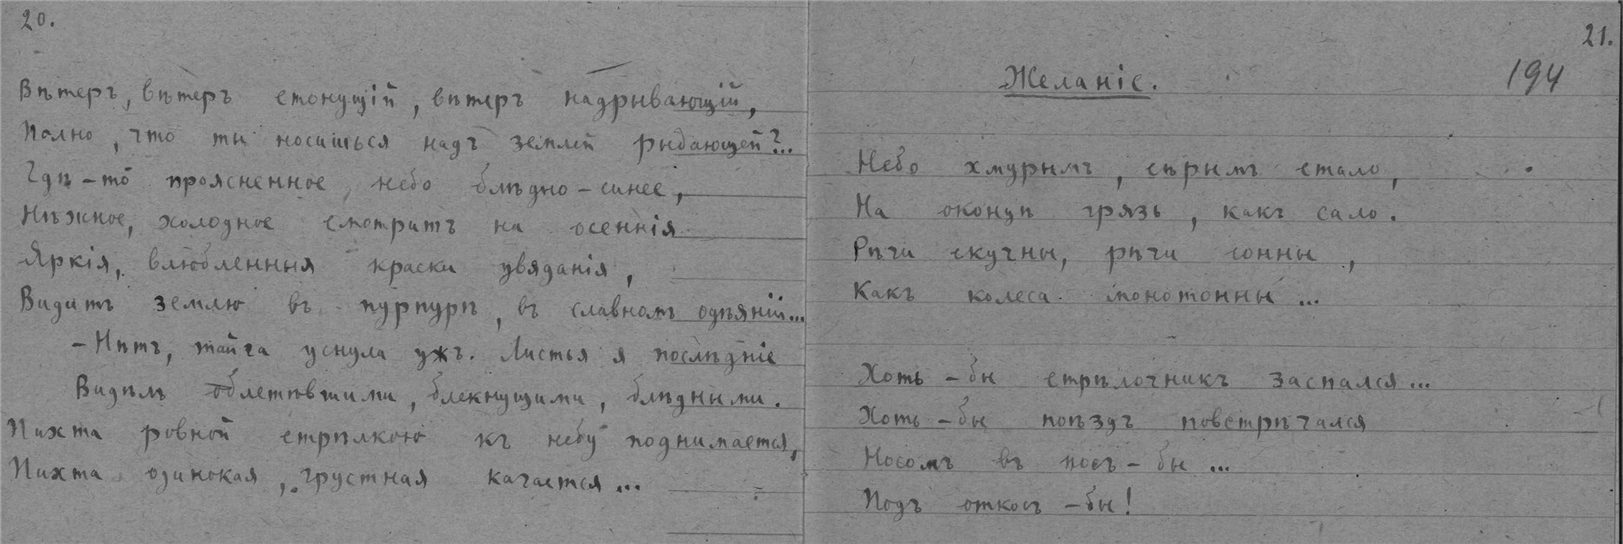 20.
Вѣтеръ, вѣтеръ стонущій, вѣтеръ надрывающій,
Полно, что ты носишься надъ землей рыдающей?...
Гдѣ-то проясненное небо блѣдно-синее,
Нѣжное, холодное смотритъ на осеннія
Яркія, влюбленныя краски увяданія,
Видитъ землю въ пурпурѣ, въ славномъ одѣяніи...
- Нѣтъ, тайга уснула ужъ. Листья я послѣдніе
Видѣлъ облетѣвшими, блекнущими, блѣдными.
Пихта ровной стрѣлкою къ небу поднимается,
Пихта одинокая, грустная качается...
21.
194
Желаніе.
Небо хмурымъ, сѣрымъ стало,
На оконцѣ грязь, какъ сало.
Рѣчи скучны, рѣчи сонны,
Какъ колеса монотонны...
Хоть-бы стрѣлочникъ заспался...
Хоть-бы поѣздъ повстрѣчался
Носомъ въ носъ-бы...
Подъ откосъ-бы!